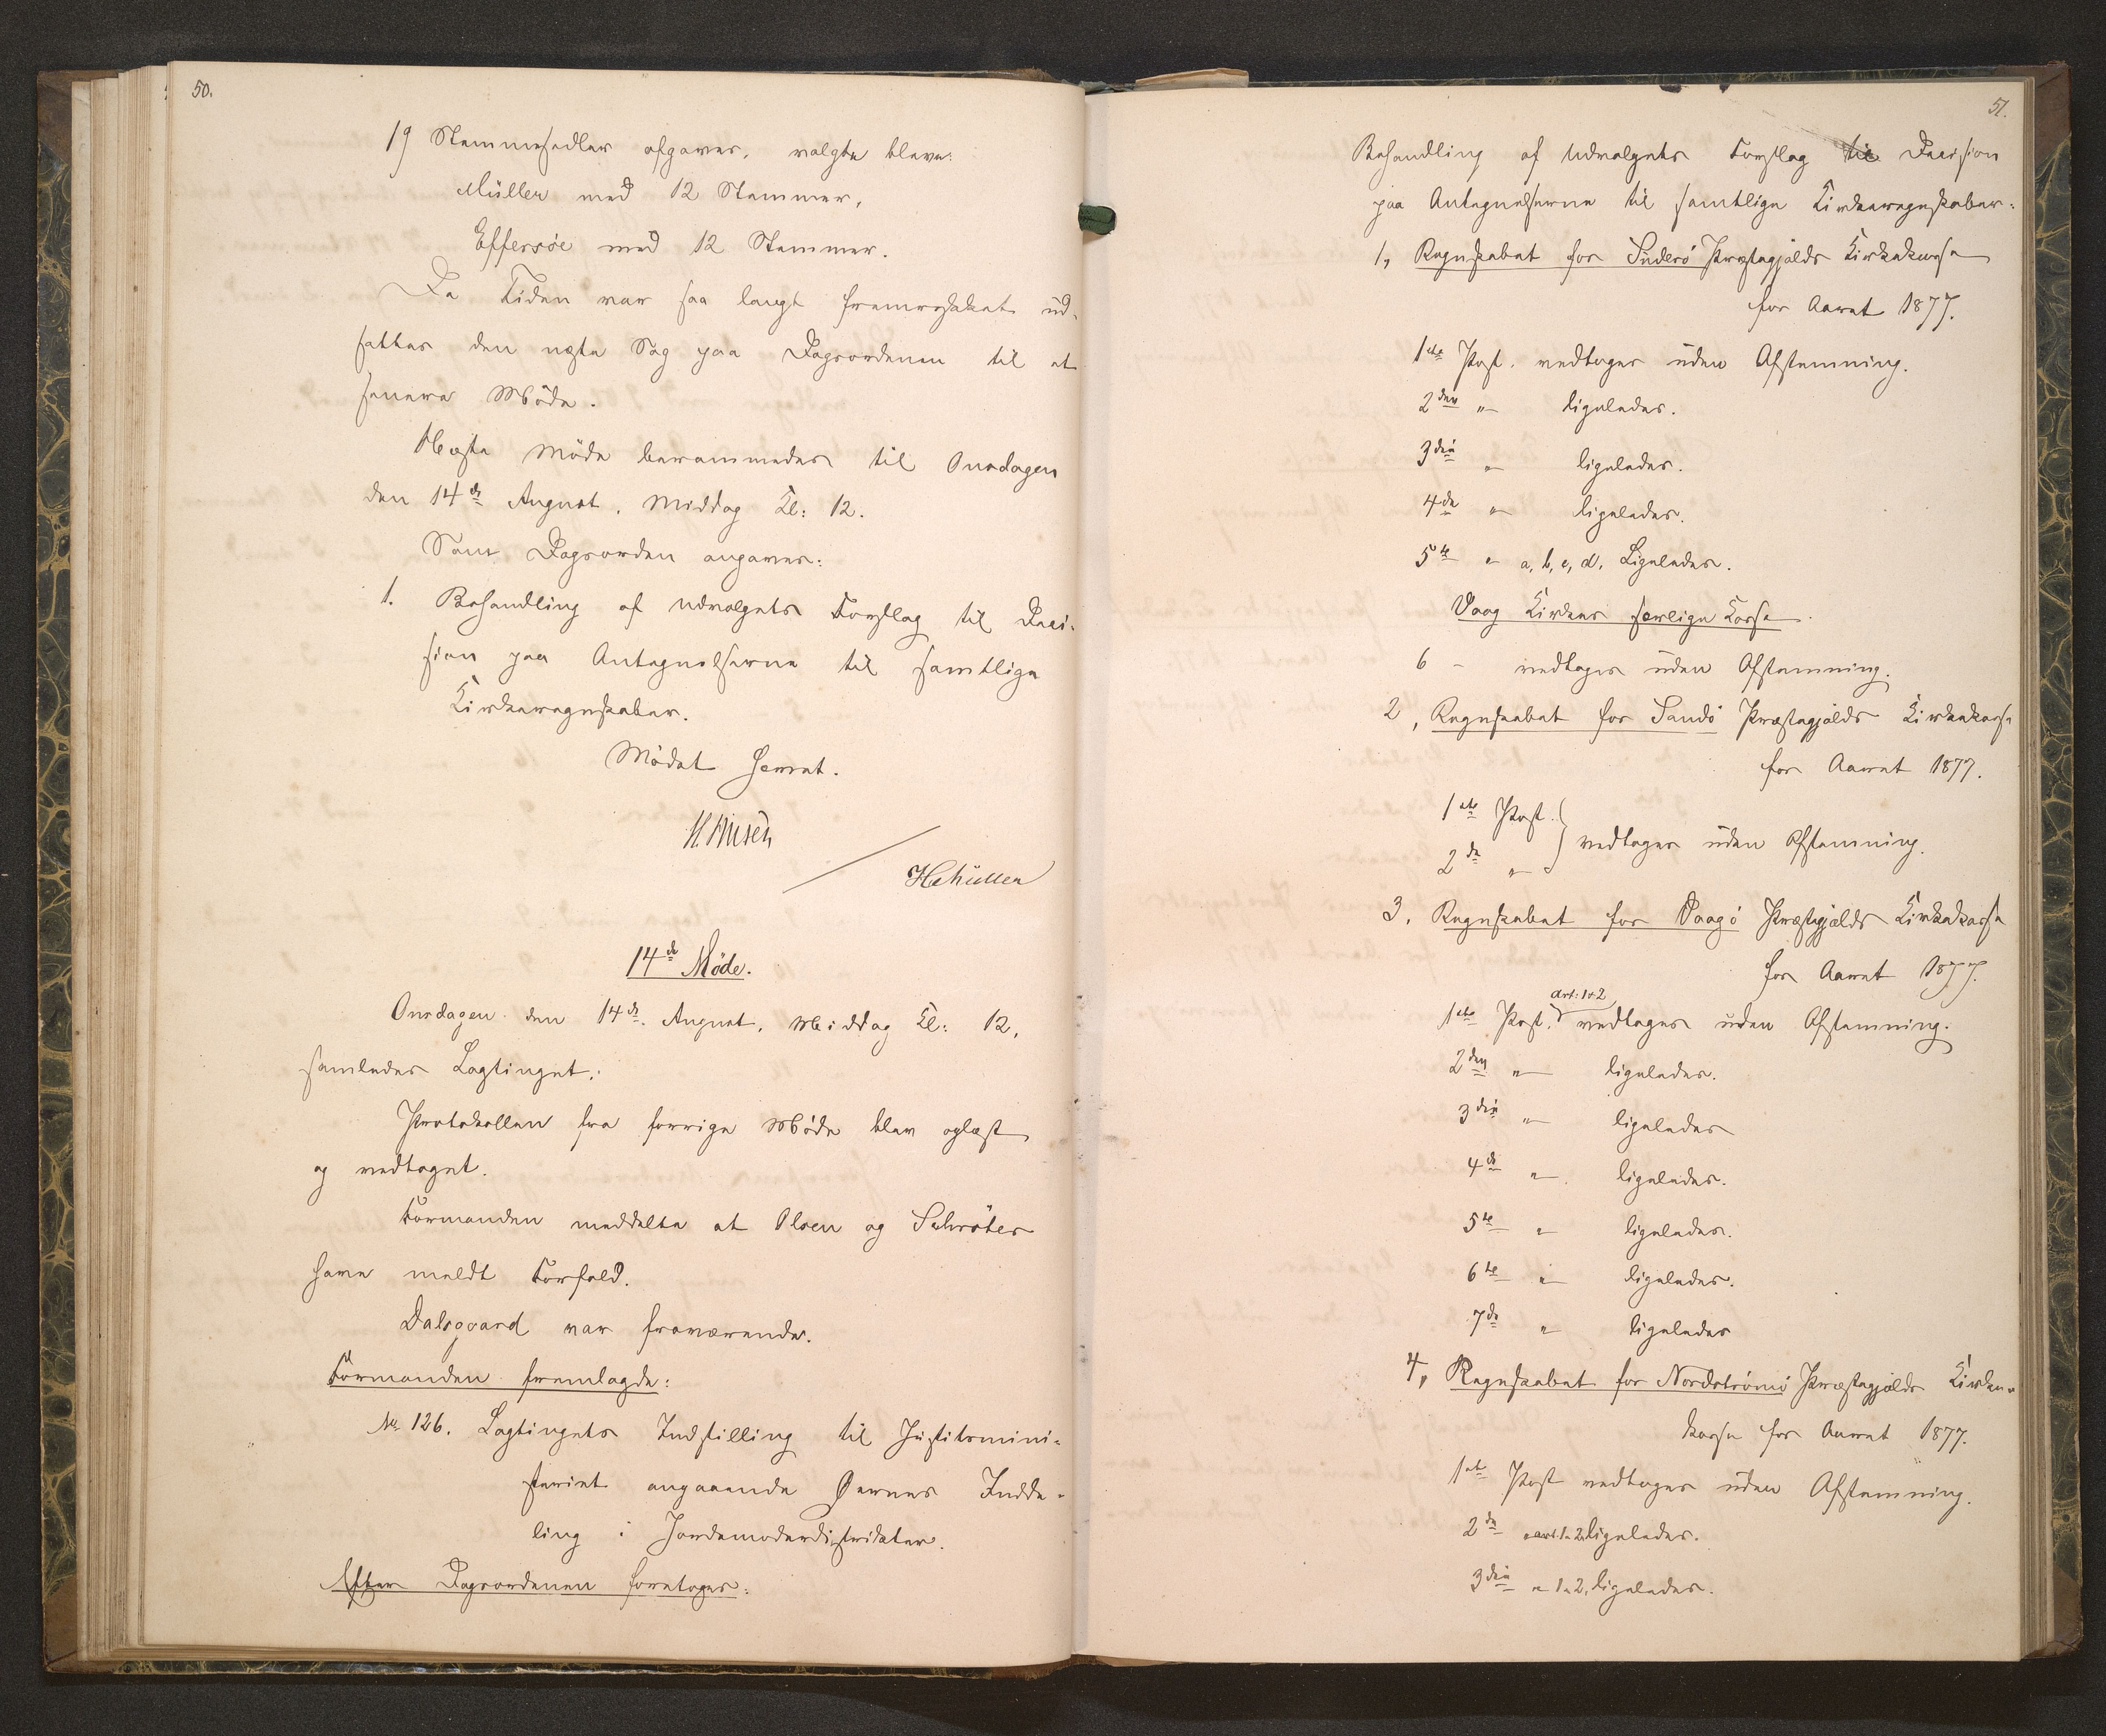 50.
19 Stemmesedler afgaves, valgte bleve:
Müller med 12 Stemmer,
Effersöe med 12 Stemmer.
Da Tiden var saa langt fremrykket ud-
sattes den næste Sag paa Dagsordenen til et
senere Möde.
Næste Möde berammedes til Onsdagen
den 14de August, Middag Kl: 12.
Som Dagsorden angaves:
1. Behandling af Udvalgets Forslag til Deci-
sion paa Antegnelserne til samtlige
Kirkeregnskaber.
Mödet hævet.
HMüller
14de Möde.
Onsdagen den 14de August, Middag Kl: 12,
samledes Lagtinget.
Protokollen fra forrige Möde blev oplæst
og vedtaget.
Formanden meddelte at Olsen og Schröter
have meldt Forfald.
Dalsgaard var fraværende.
Formanden fremlagde:
No 126. Lagtingets Indstilling til Justitsmini-
steriet angaaende Øernes Indde-
ling i Jordemoderdistrikter.
Efter Dagsordenen foretoges:
51.
Behandling af Udvalgets Forslag til Decision
paa Antegnelserne til samtlige Kirkeregnskaber:
1, Regnskabet for Suderö Præstegjælds Kirkekasse
for Aaret 1877.
1ste Post. vedtoges uden Afstemning.
2den " ligeledes.
3die " ligeledes.
4de " ligeledes.
5te " a, b, c, d, Ligeledes.
Vaag Kirkes særlige Kasse.
6 - vedtoges uden Afstemning.
2, Regnskabet for Sandö Præstegjælds Kirkekasse
for Aaret 1877.
1ste Post.
2de " } vedtoges uden Afstemning.
3, Regnskabet for Vaagö Præstegjælds Kirkekasse
for Aaret 1877.
art: 1+2
1ste Post. vedtoges uden Afstemning.
2den " ligeledes.
3die " ligeledes
4de " ligeledes.
5te " ligeledes.
6te " ligeledes.
7de " ligeledes
4, Regnskabet for Nordströmö Præstegjælds Kirke-
kasse for Aaret 1877.
1ste Post vedtoges uden Afstemning.
2de " art. 1-2, ligeledes.
3die " 1-2, ligeledes.